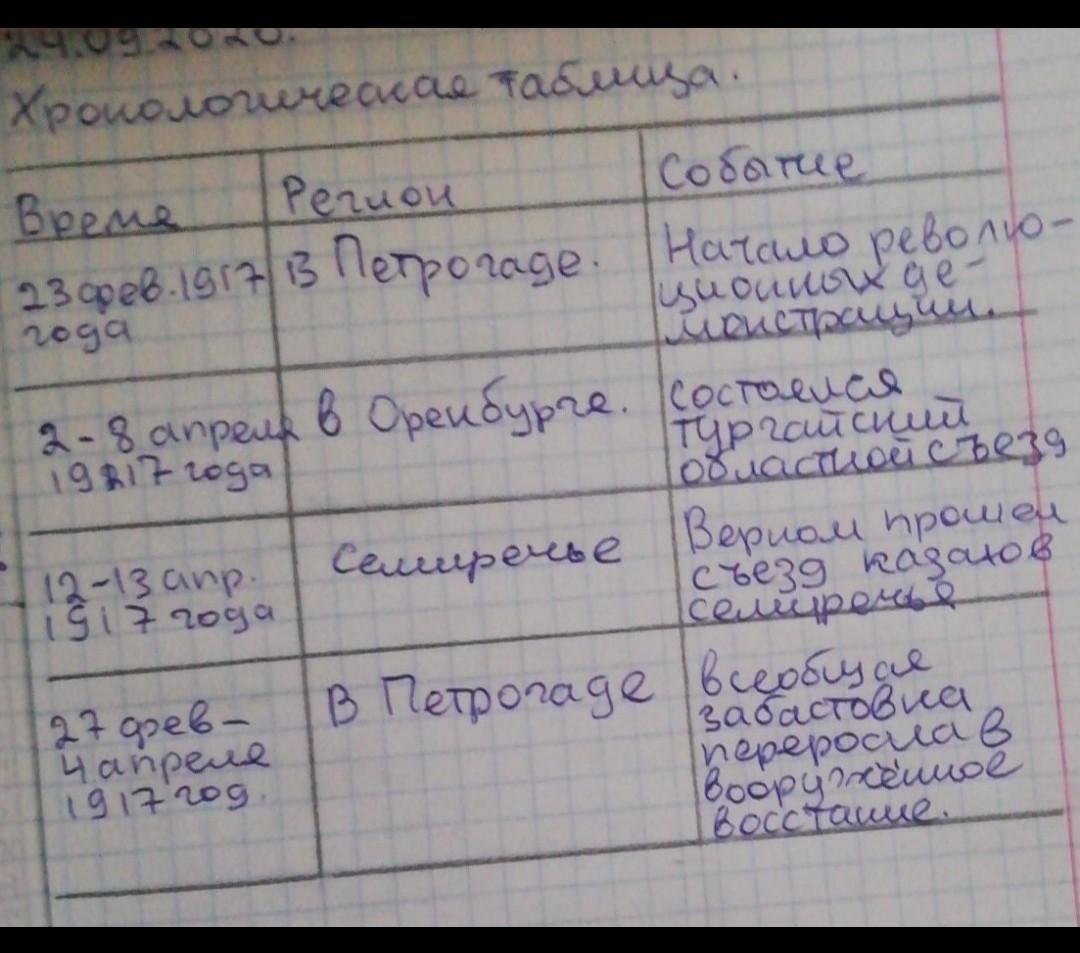 24.09.2020.
Хронологическая таблица.
Время
Регион
Событие
23 фев. 1917
года
В Петрогаде.
Начало револю-
ционных де-
монстрации.
2-8 апреля
19217 года
в Оренбурге.
состоялся
тургайский
областной съезд
12-13 апр.
1917 года
Семиречье
Верном прошел
съезд казахов
семиречья
27 фев-
4 апреля
1917 год.
В Петрогаде
всеобщая
забастовка
переросла в
вооружённое
восстание.